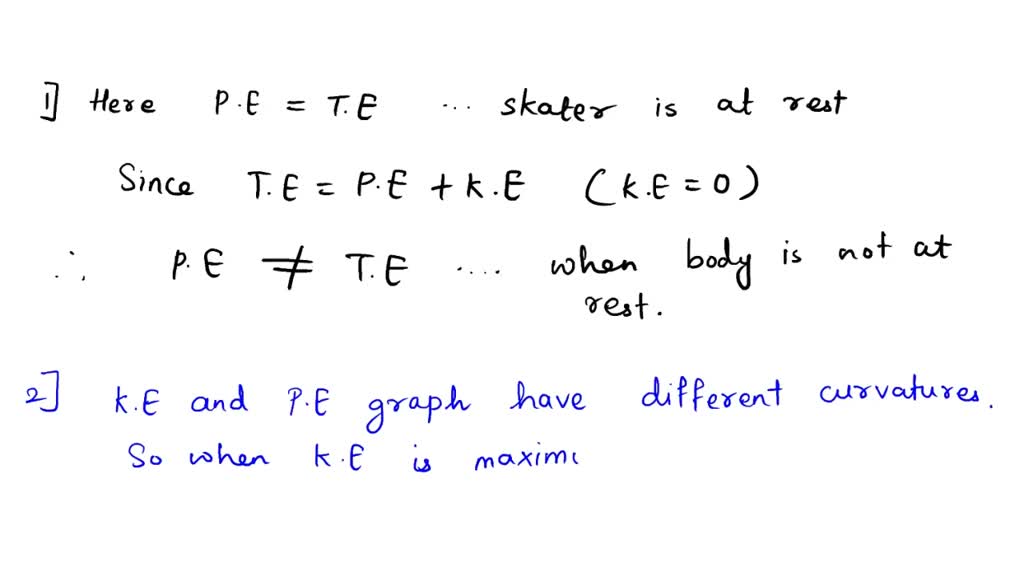 1] Here P.E = T.E ... skater is at rest
Since T.E = P.E + K.E (K.E = 0)
∴ P.E ≠ T.E .... when body is not at
rest.
2] K.E and P.E graph have different curvatures.
So when K.E is maxim